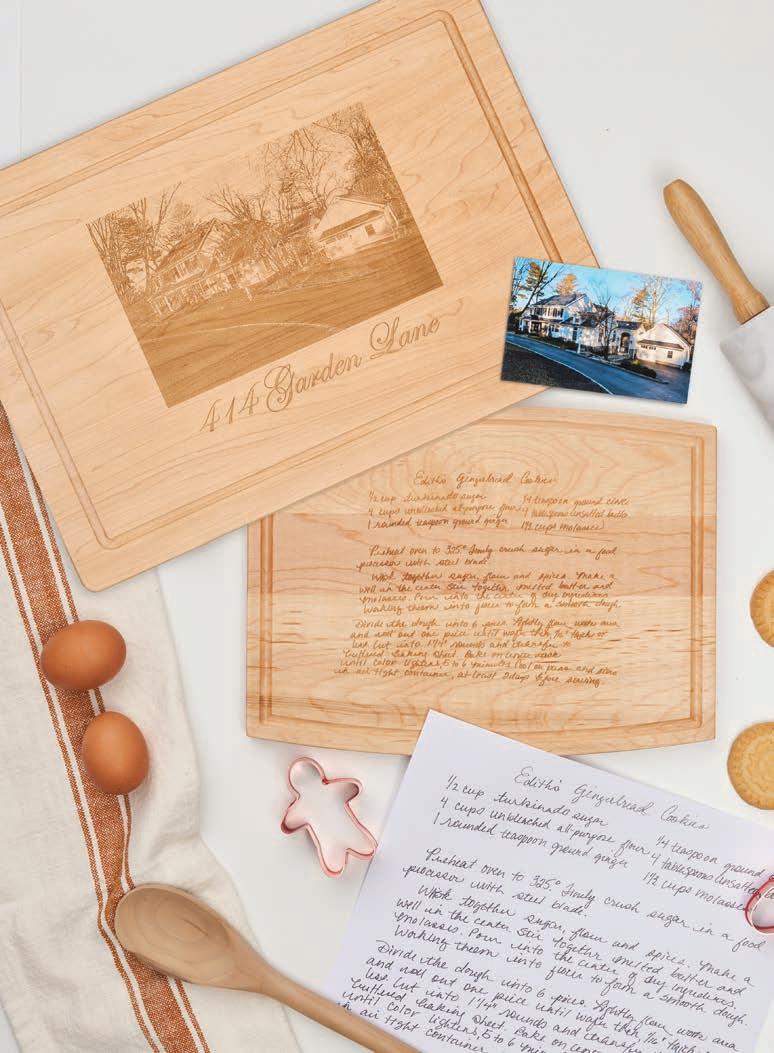 414 Garden Lane
Edith's Gingerbread Cookies
1/2 cup turbinado sugar 1/4 teaspoon ground clove
4 cups unbleached all-purpose flour 4 tablespoons unsalted butter
1 rounded teaspoon ground ginger 1 1/2 cups molasses
Preheat oven to 325.° Finely crush sugar in a food
processor with steel blade.
Whisk together sugar, flour and spices. Make a
well in the center. Stir together melted butter and
molasses. Pour into the center of dry ingredients.
Working them into flour to form a smooth dough.
Divide the dough into 6 piece. Lightly flour work area
and roll out one piece until wafer thin, 1/16" thick or
less. Cut into 1 1/4" rounds and transfer to
buttered baking sheet. Bake on center rack
until color lightens, 5 to 6 minutes. Cool on pans and store
in air tight container, at least 2 days before serving.
Edith's Gingerbread Cookies
1/2 cup turbinado sugar 1/4 teaspoon ground
4 cups unbleached all-purpose flour 4 tablespoons unsalted
1 rounded teaspoon ground ginger 1 1/2 cups molasses
Preheat oven to 325.° Finely crush sugar in a food
processor with steel blade.
Whisk together sugar, flour and spices. Make a
well in the center. Stir together melted butter and
molasses. Pour into the center of dry ingredients.
Working them into flour to form a smooth dough.
Divide the dough into 6 piece. Lightly flour work area
and roll out one piece until wafer thin, 1/16" thick
less. Cut into 1 1/4" rounds and transfer
buttered baking sheet. Bake on center
until color lightens, 5 to 6
in air tight container